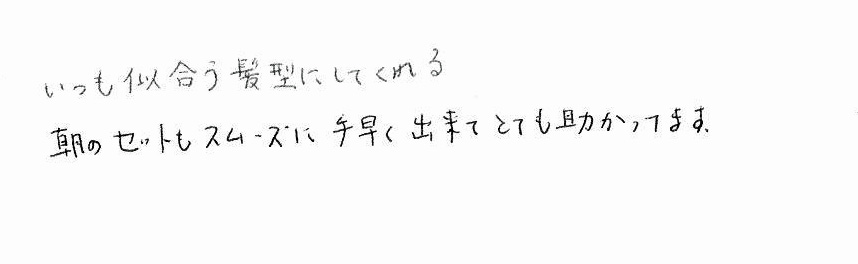 いつも似合う髪型にしてくれる
朝のセットもスムーズに手早く出来てとても助かってます.